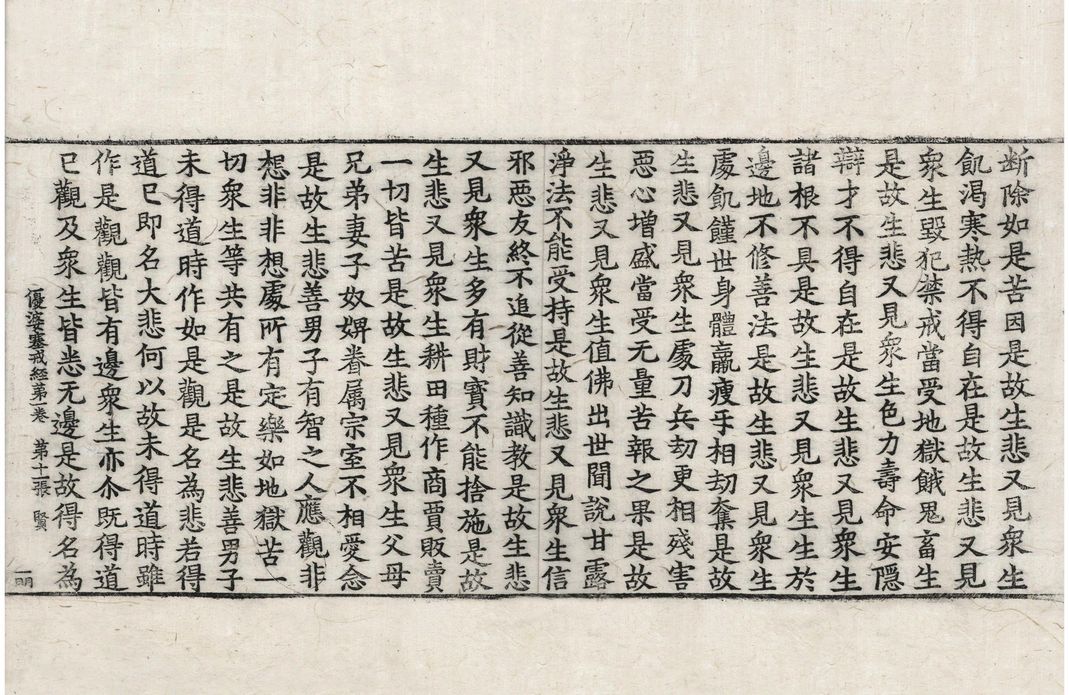 断除如是苦因是故生悲又見衆生
飢渴寒熱不得自在是故生悲又見
衆生毀犯禁戒當受地獄餓鬼畜生
是故生悲又見衆生色力壽命安隱
辯才不得自在是故生悲又見衆生
諸根不具是故生悲又見衆生生於
邊地不修善法是故生悲又見衆生
處飢饉世身體羸瘦手相劫奪是故
生悲又見衆生處刀兵劫更相殘害
惡心增盛當受无量苦報之果是故
生悲又見衆生值佛出世聞說甘露
淨法不能受持是故生悲又見衆生信
邪惡友終不追從善知識教是故生悲
又見衆生多有財寶不能捨施是故
生悲又見衆生耕田種作商賈販賣
一切皆苦是故生悲又見衆生父母
兄弟妻子奴婢眷属宗室不相愛念
是故生悲善男子有智之人應觀非
想非非想處所有定樂如地獄苦一
切衆生等共有之是故生悲善男子
未得道時作如是觀是名為悲若得
道已即名大悲何以故未得道時雖
作是觀觀皆有邊衆生亦尒既得道
已觀及衆生皆悉无邊是故得名為
優婆塞戒経第一卷 第十二張 賢